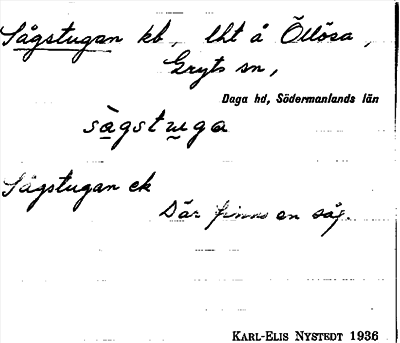 Sågstugan kb, lht å Öllösa,
Gryts sn,
Daga hd, Södermanlands län
sågstuga
Sågstugan ek
Där finns en såg.
KARL-ELIS NYSTEDT 1936